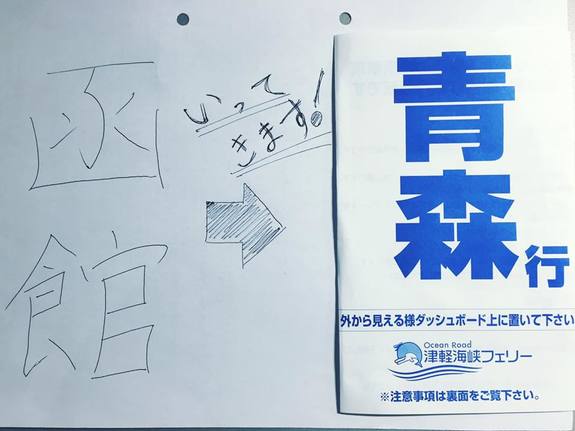 函館
いって
きます!
青森行
外から見える様ダッシュボード上に置いて下さい
Ocean Road
津軽海峡フェリー
※注意事項は裏面をご覧下さい。